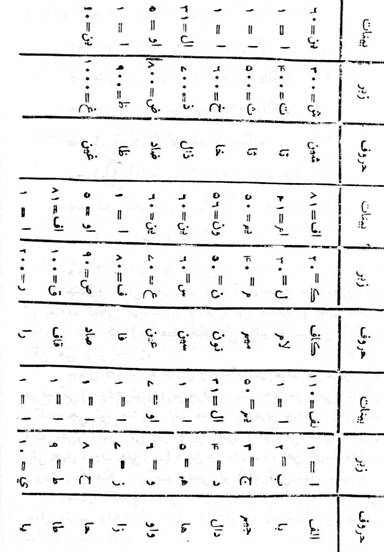 حروف زبر بینات حروف زبر بینات حروف زبر بینات
الف ا = ۱ لف = ۱۱۰ کاف ک = ۲۰ اف = ۸۱ شین ش = ۳۰۰ ین = ۶۰
با ب = ۲ ا = ۱ لام ل = ۳۰ ام = ۴۱ تا ت = ۴۰۰ ا = ۱
جیم ج = ۳ یم = ۵۰ میم م = ۴۰ یم = ۵۰ ثا ث = ۵۰۰ ا = ۱
دال د = ۴ ال = ۳۱ نون ن = ۵۰ ون = ۵۶ خا خ = ۶۰۰ ا = ۱
ها ه = ۵ ا = ۱ سین س = ۶۰ ین = ۶۰ ذال ذ = ۷۰۰ ال = ۳۱
واو و = ۶ او = ۷ عین ع = ۷۰ ین = ۶۰ ضاد ض = ۸۰۰ اد = ۵
زا ز = ۷ ا = ۱ فا ف = ۸۰ ا = ۱ ظا ظ = ۹۰۰ ا = ۱
حا ح = ۸ ا = ۱ صاد ص = ۹۰ اد = ۵ غین غ = ۱۰۰۰ ین = ۶۰
طا ط = ۹ ا = ۱ قاف ق = ۱۰۰ اف = ۸۱
یا ي = ۱۰ ا = ۱ را ر = ۲۰۰ ا = ۱